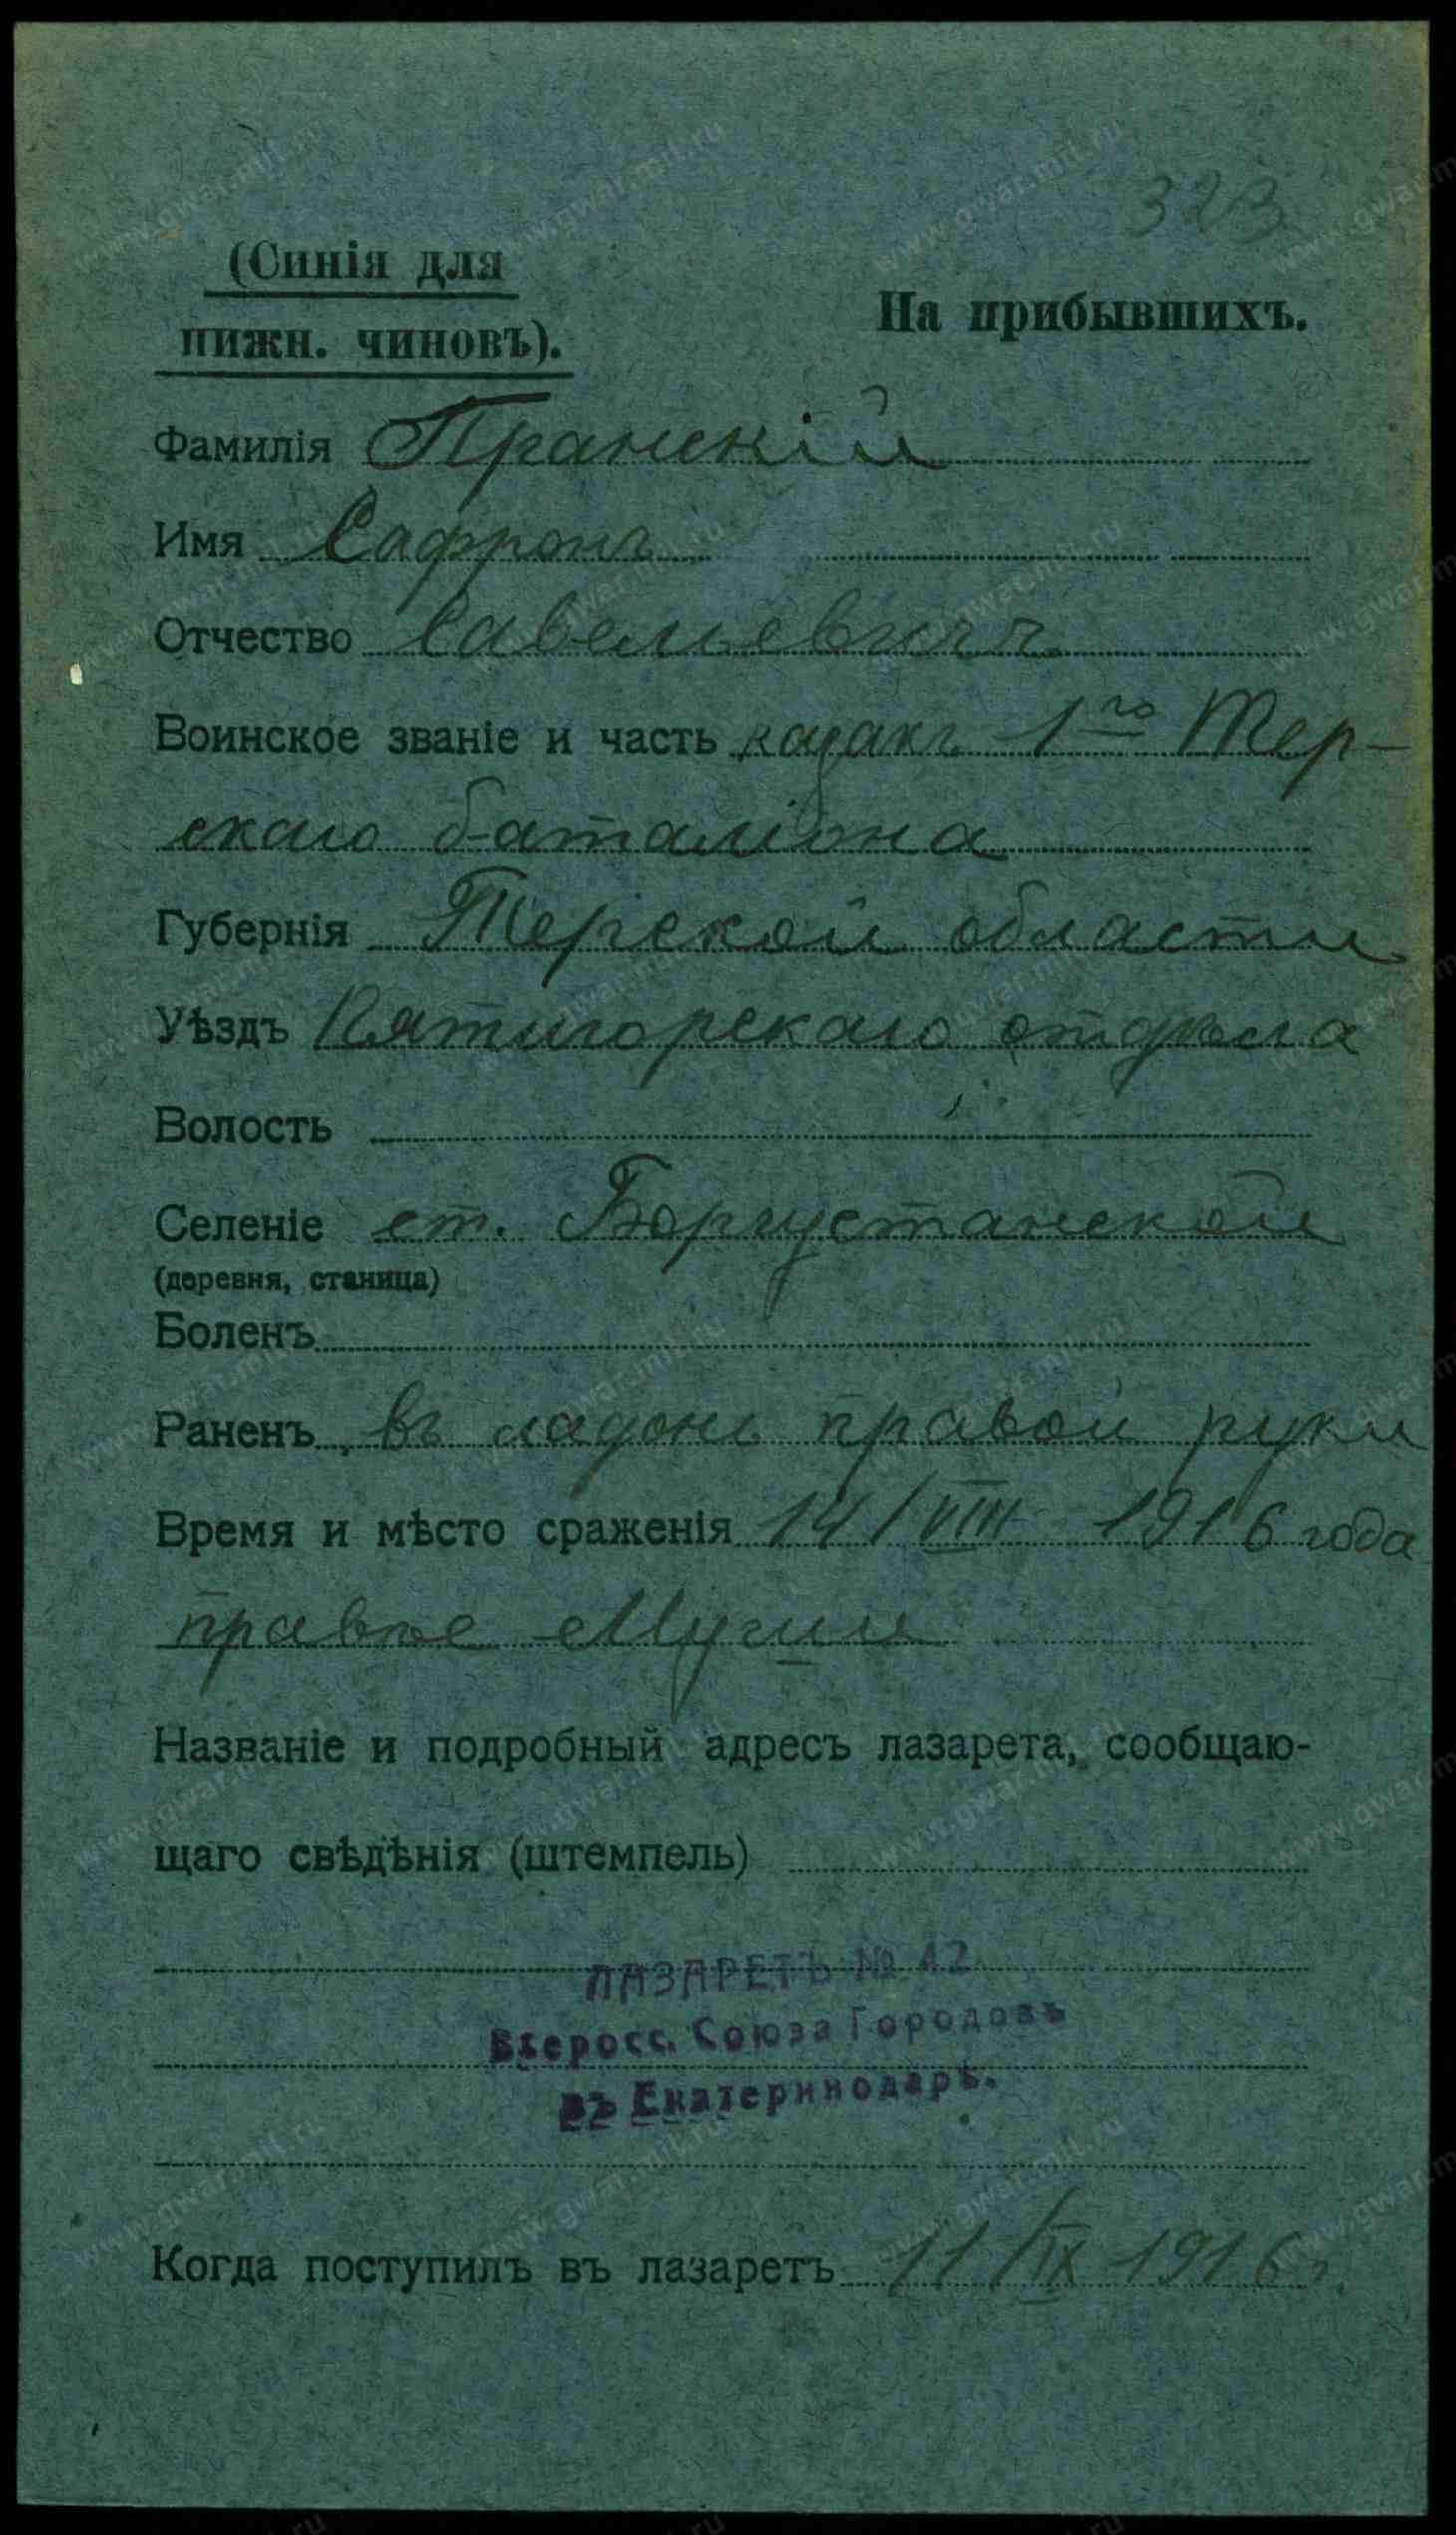 323
(Синія для
нижн. чиновъ).
На прибывшихъ.
Фамилія Пранскій
Имя Сафронъ
Отчество Савельевичъ
Воинское званіе и часть казакъ 1го Тер-
скаго баталіона
Губернія Терской области
Уѣздъ Пятигорскаго отдѣла
Волость
Селеніе ст. Боргустанской
(деревня, станица)
Боленъ
Раненъ въ ладонь правой руки
Время и мѣсто сраженія 14/VIII 1916 года
правѣе
Названіе и подробный адресъ лазарета, сообщаю-
щаго свѣдѣнія (штемпель)
ЛАЗАРЕТЪ № 12
Всеросс. Союза Городовъ
въ Екатеринодарѣ.
Когда поступилъ въ лазаретъ 11/IX 1916 г.